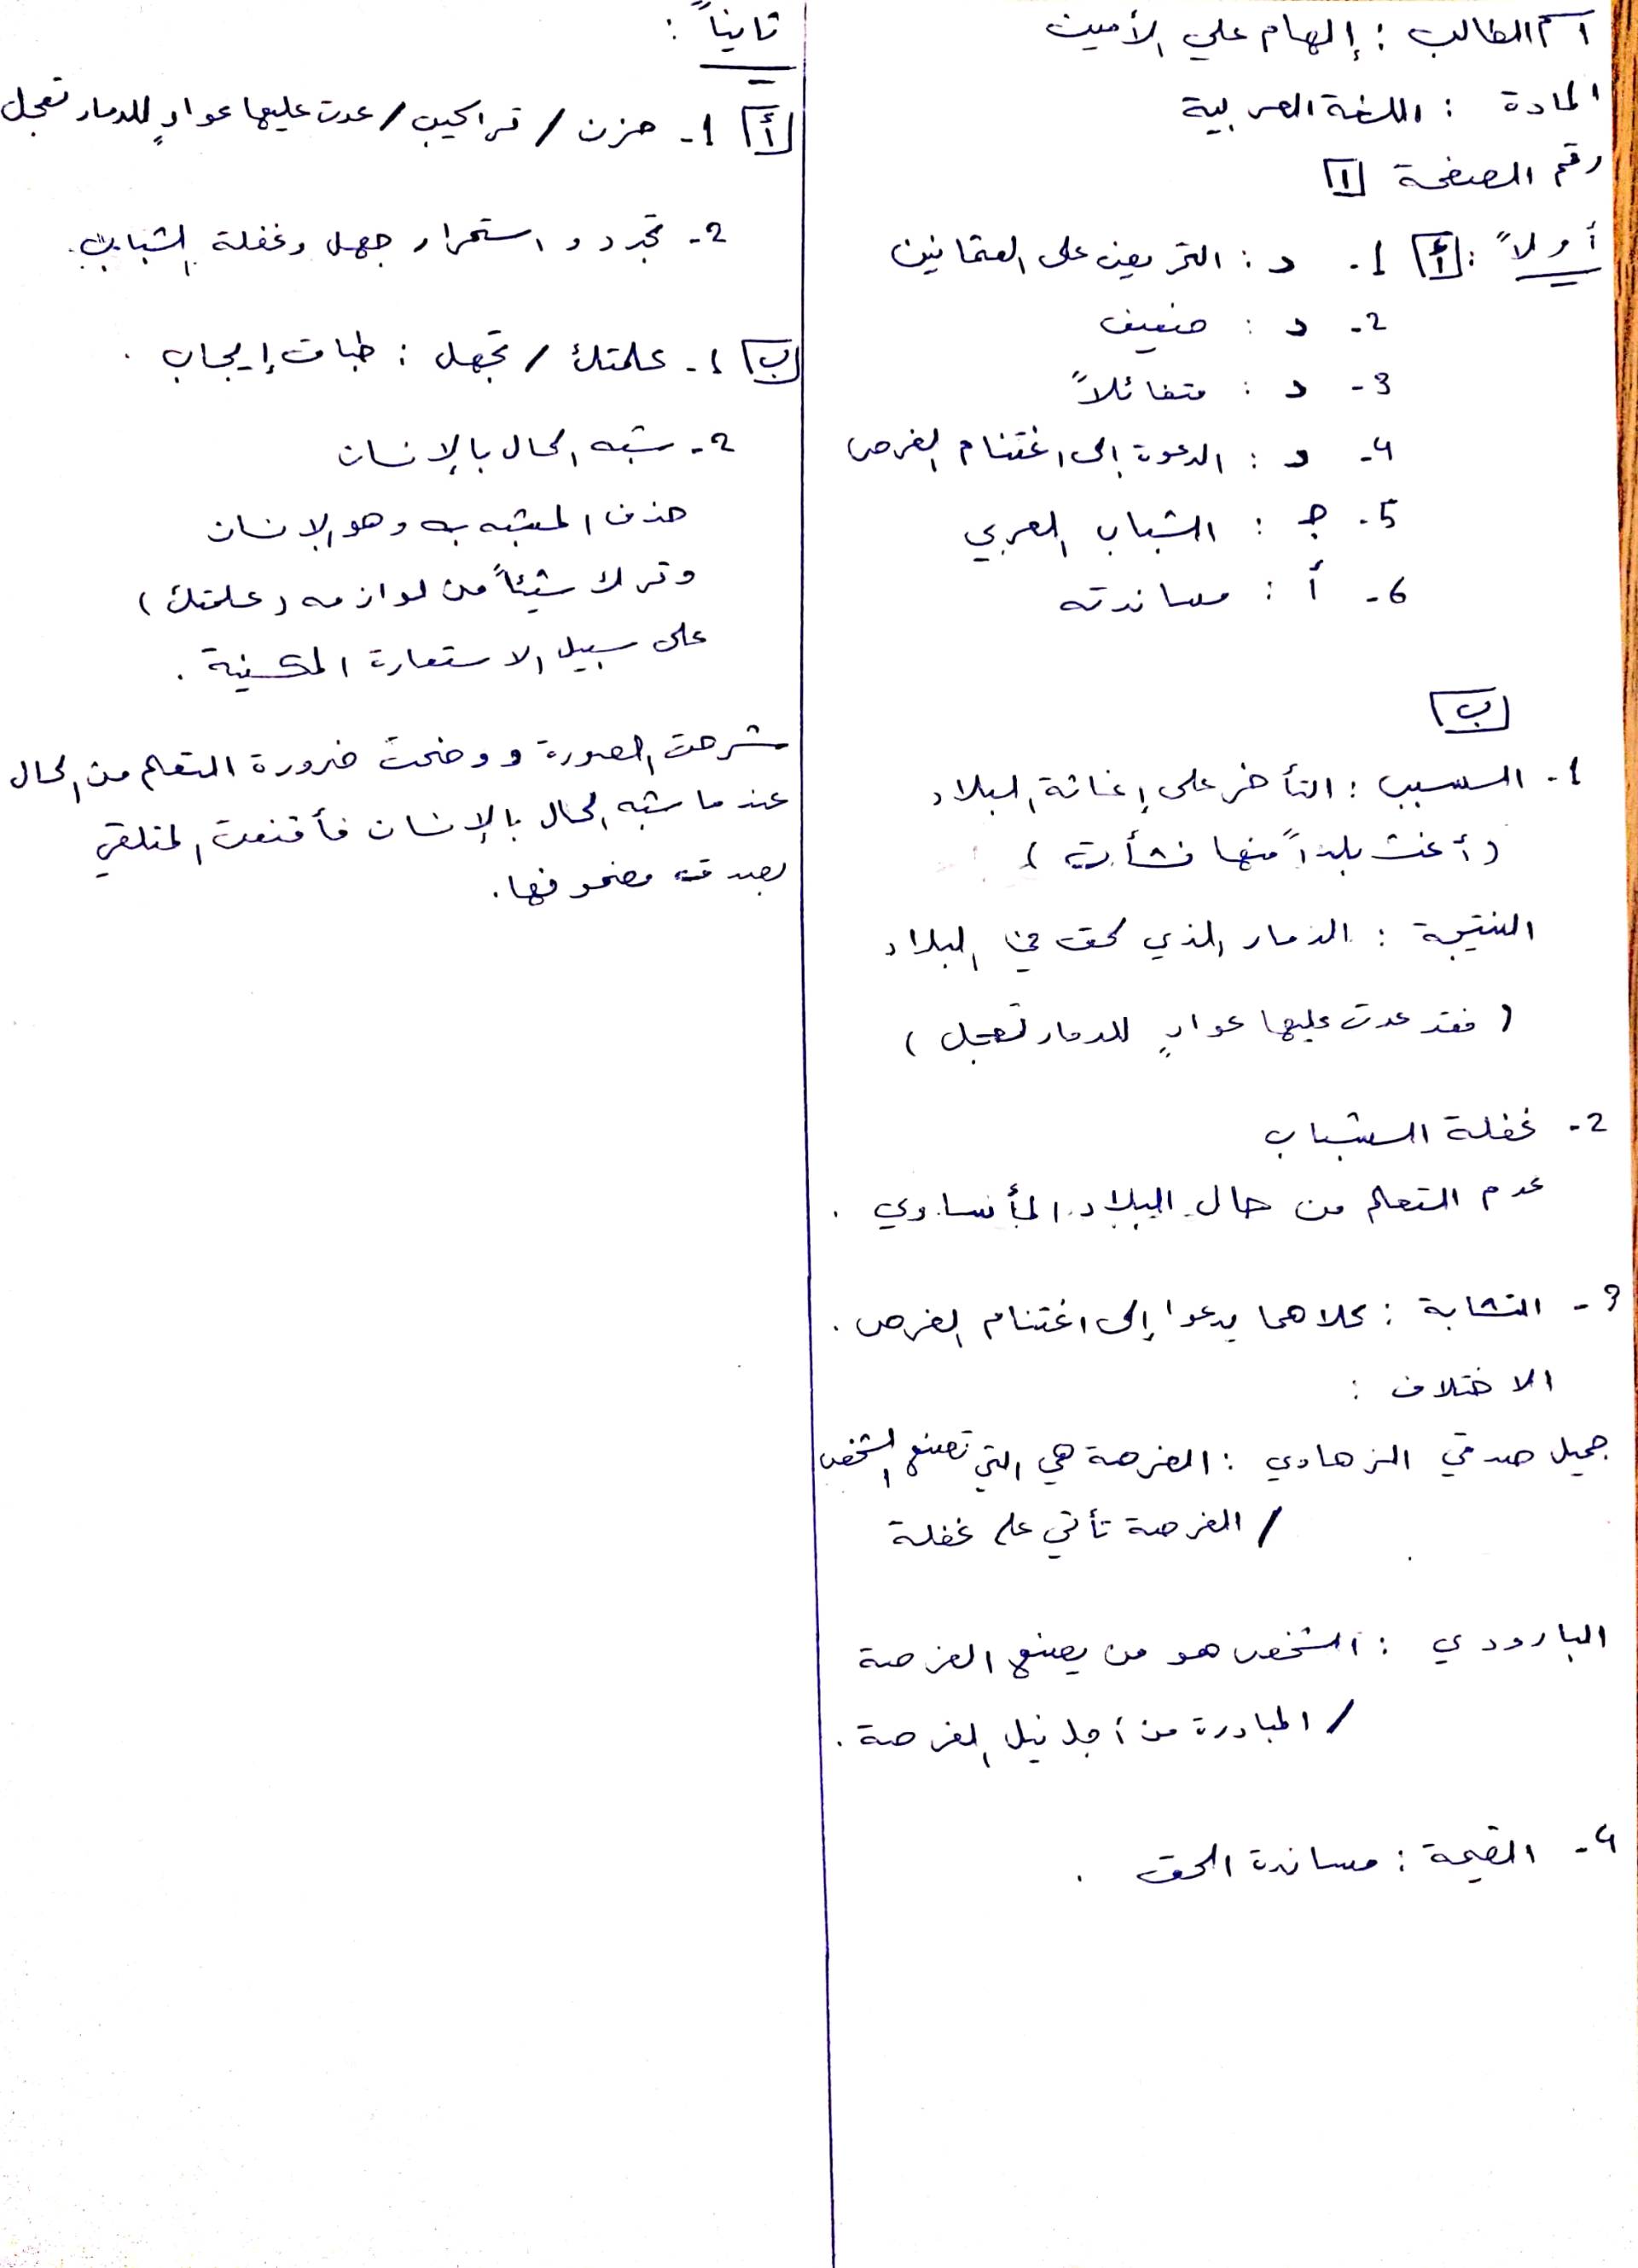 اسم الطالب : إلهام علي الأمين
المادة : اللغة العربية
رقم الصفحة 1
أولاً : أ 1- د : التحريض على العثمانيين
2- د : ضعيف
3- د : متفائلاً
4- د : الدعوة إلى اغتنام الفرص
5- جـ : الشباب العربي
6- أ : مساندته
ب
1- السبب : التأخر على إغاثة البلاد
( أغث بلداً منها نشأت )
النتيجة : الدمار الذي لحق في البلاد
( فقد عدت عليها عوادٍ للدمار تعجل )
2- غفلة الشباب
عدم التعلم من حال البلاد المأساوي .
3- التشابة : كلاهما يدعوا إلى اغتنام الفرص .
الاختلاف :
جميل صدقي الزهاوي : الفرصة هي التي تصنع الشخص
/ الفرصة تأتي على غفلة
البارودي : الشخص هو من يصنع الفرصة
/ المبادرة من أجل نيل الفرصة .
4- القيمة : مساندة الحق .
ثانياً :
أ 1- حزن / تراكيب / عدت عليها عوادٍ للدمار تعجل
2- تجدد و استمرار جهل وغفلة الشباب .
ب 1- علمتك / تجهل : طباق إيجاب .
2- شبه الحال بالإنسان
حذف المشبه به وهو الإنسان
وترك شيئاً من لوازمه ( علمتك )
على سبيل الاستعارة المكنية .
شرحت الصورة ووضحت ضرورة التعلم من الحال
عندما شبه الحال بالإنسان فأقنعت المتلقي
بصدق مضمونها .